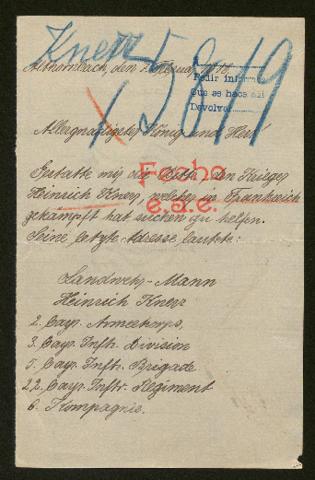 Knerz
75819
Althornbach, den
Pedir inform
Que se haga
Devolver
Allergnädigster König und Herr!
Gestatte mir die Bitte, den Krieger
Fecho
Heinrich Knerz, welcher in Frankreich
e.s.e.
gekämpft hat suchen zu helfen.
Seine letzte Adresse lautete:
Landwehr-Mann
Heinrich Knerz
2. Bayr. Armeekorps,
3. Bayr. Inftr. Division
5. Bayr. Inftr. Brigade
22. Bayr. Inftr. Regiment
6. Kompagnie.